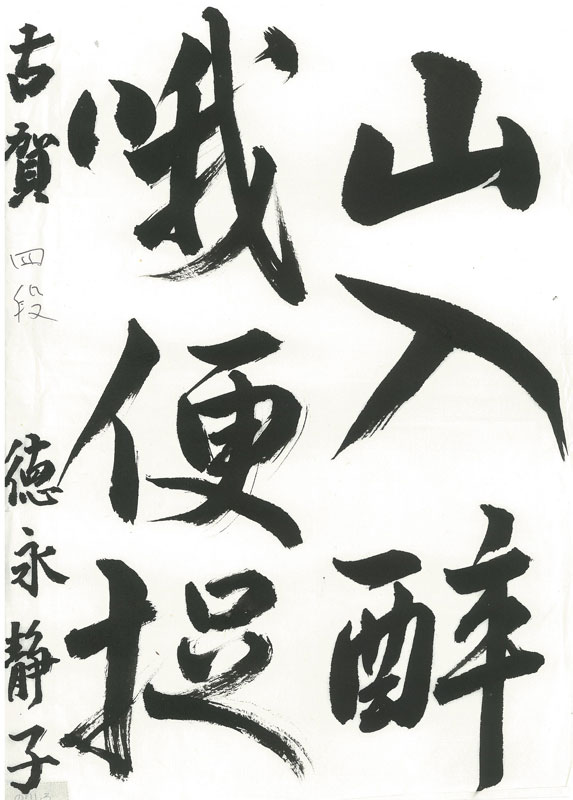 山入酔
哦便捉
古賀 四段 徳永静子